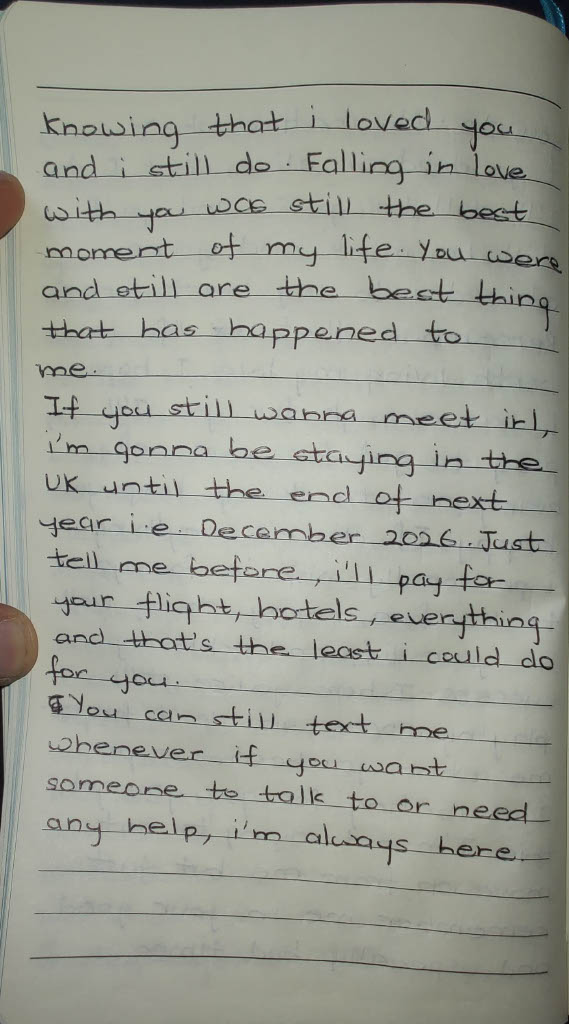 Knowing that i loved you
and i still do. Falling in love
with you was still the best
moment of my life. You were
and still are the best thing
that has happened to
me.
If you still wanna meet irl,
i'm gonna be staying in the
UK until the end of next
year i.e. December 2026. Just
tell me before, i'll pay for
your flight, hotels, everything
and that's the least i could do
for you.
You can still text me
whenever if you want
someone to talk to or need
any help, i'm always here.